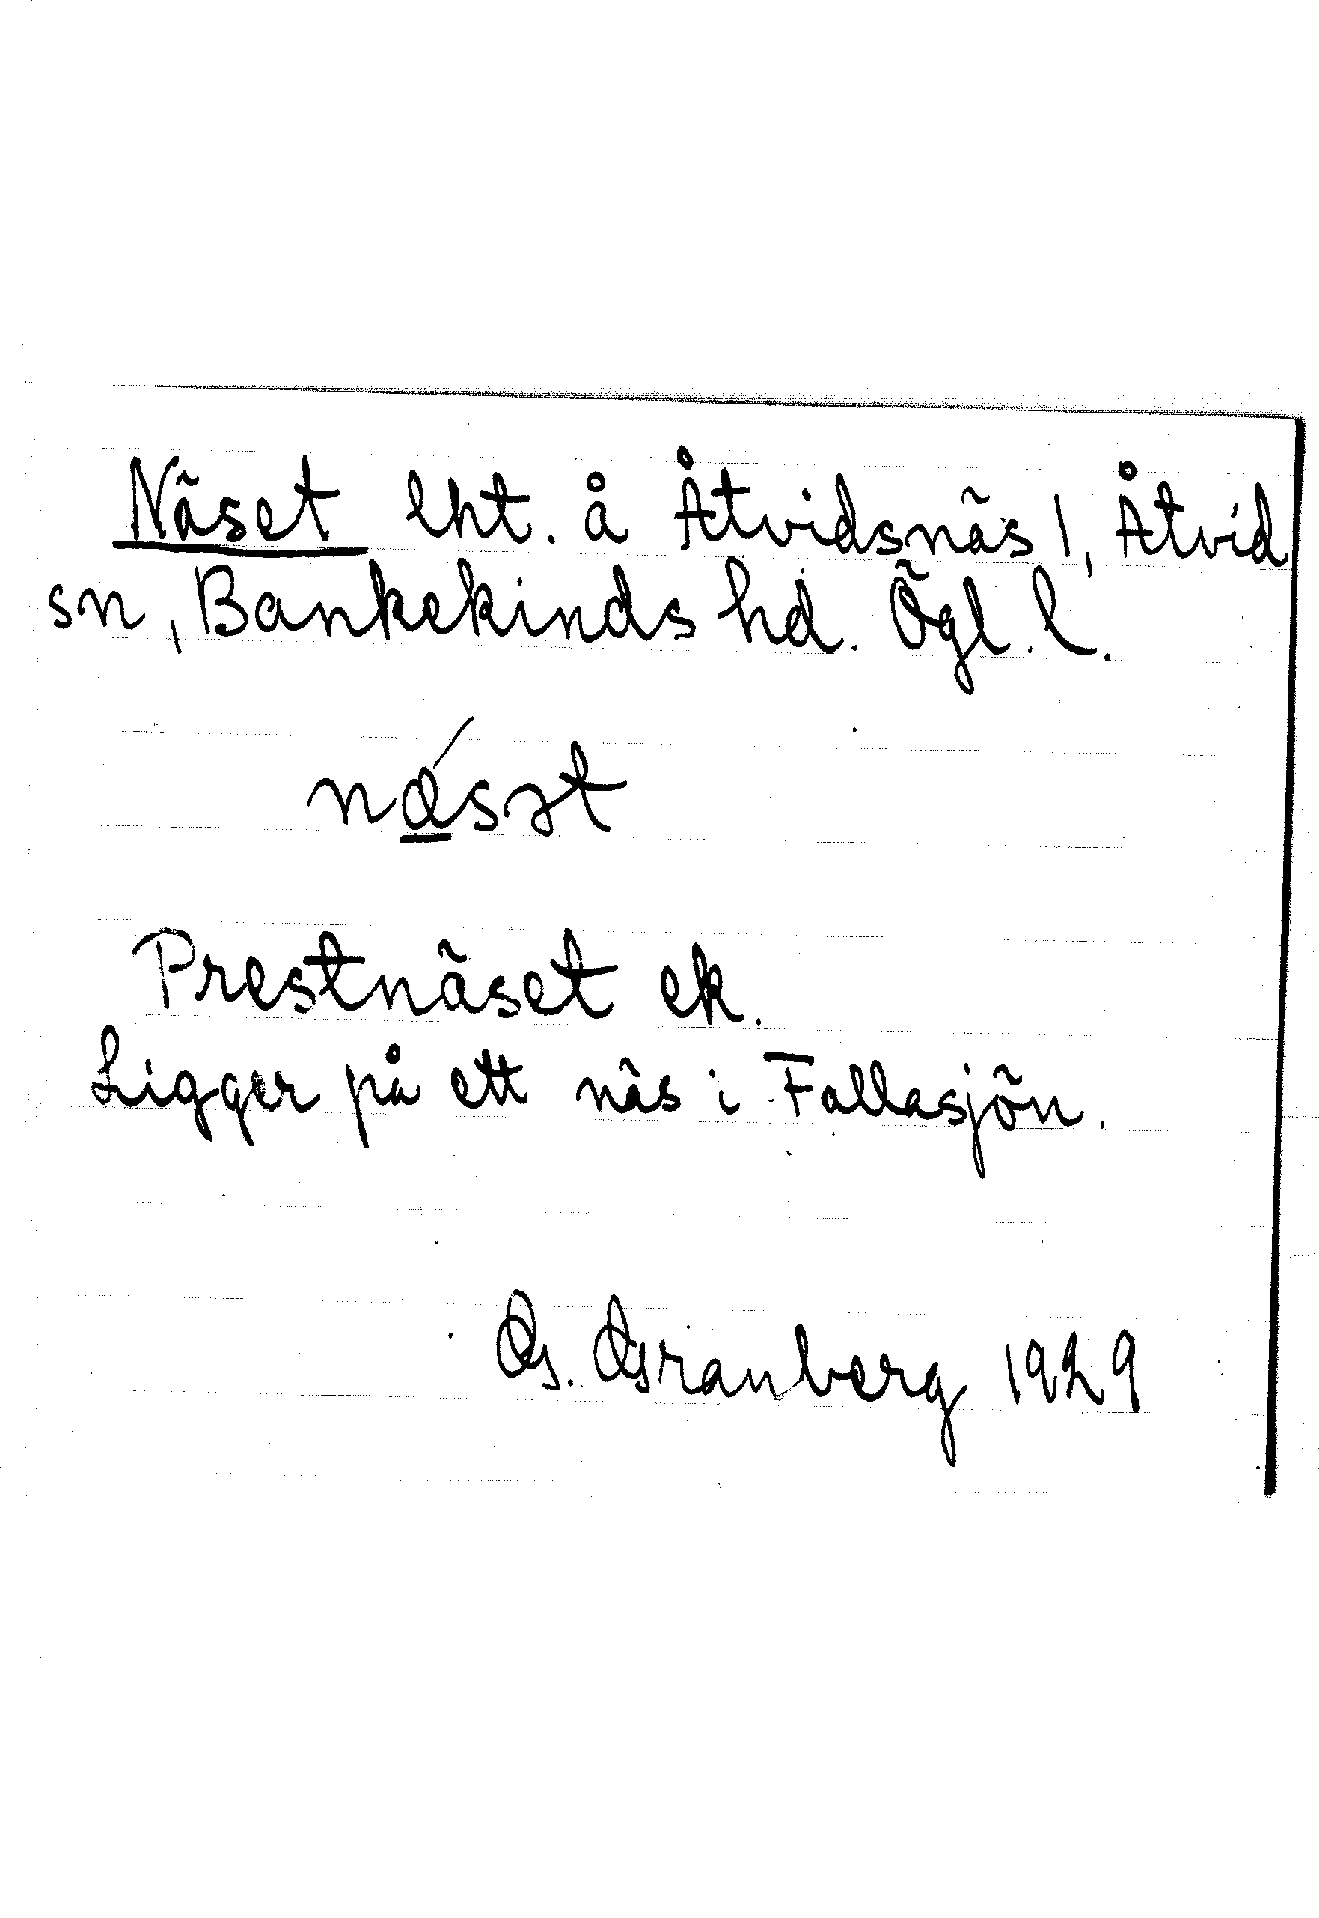 Näset lht. å Åtvidsnäs 1, Åtvid
sn, Bankekinds hd. Ögl. l.
nǽ̲sət
Prestnäset ek.
Ligger på ett näs i Fallasjön.
G. Granberg 1929